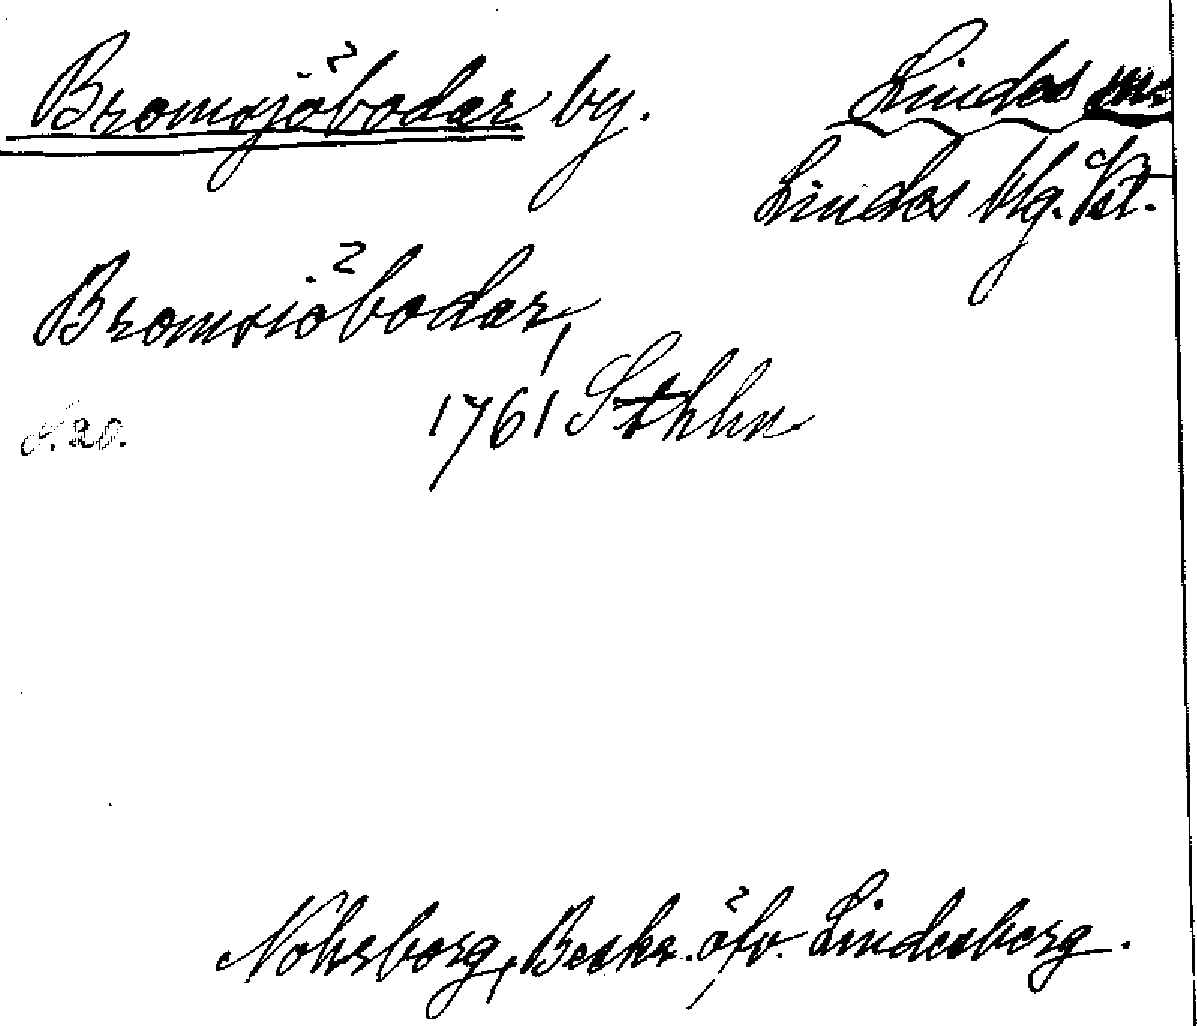 Bromsjöbodar by.
Lindes
Lindes blg. Vst.
Bromsiöbodar,
1761 Sthhn
s. 20.
Nohrborg, Beskr. öfv. Lindesberg.